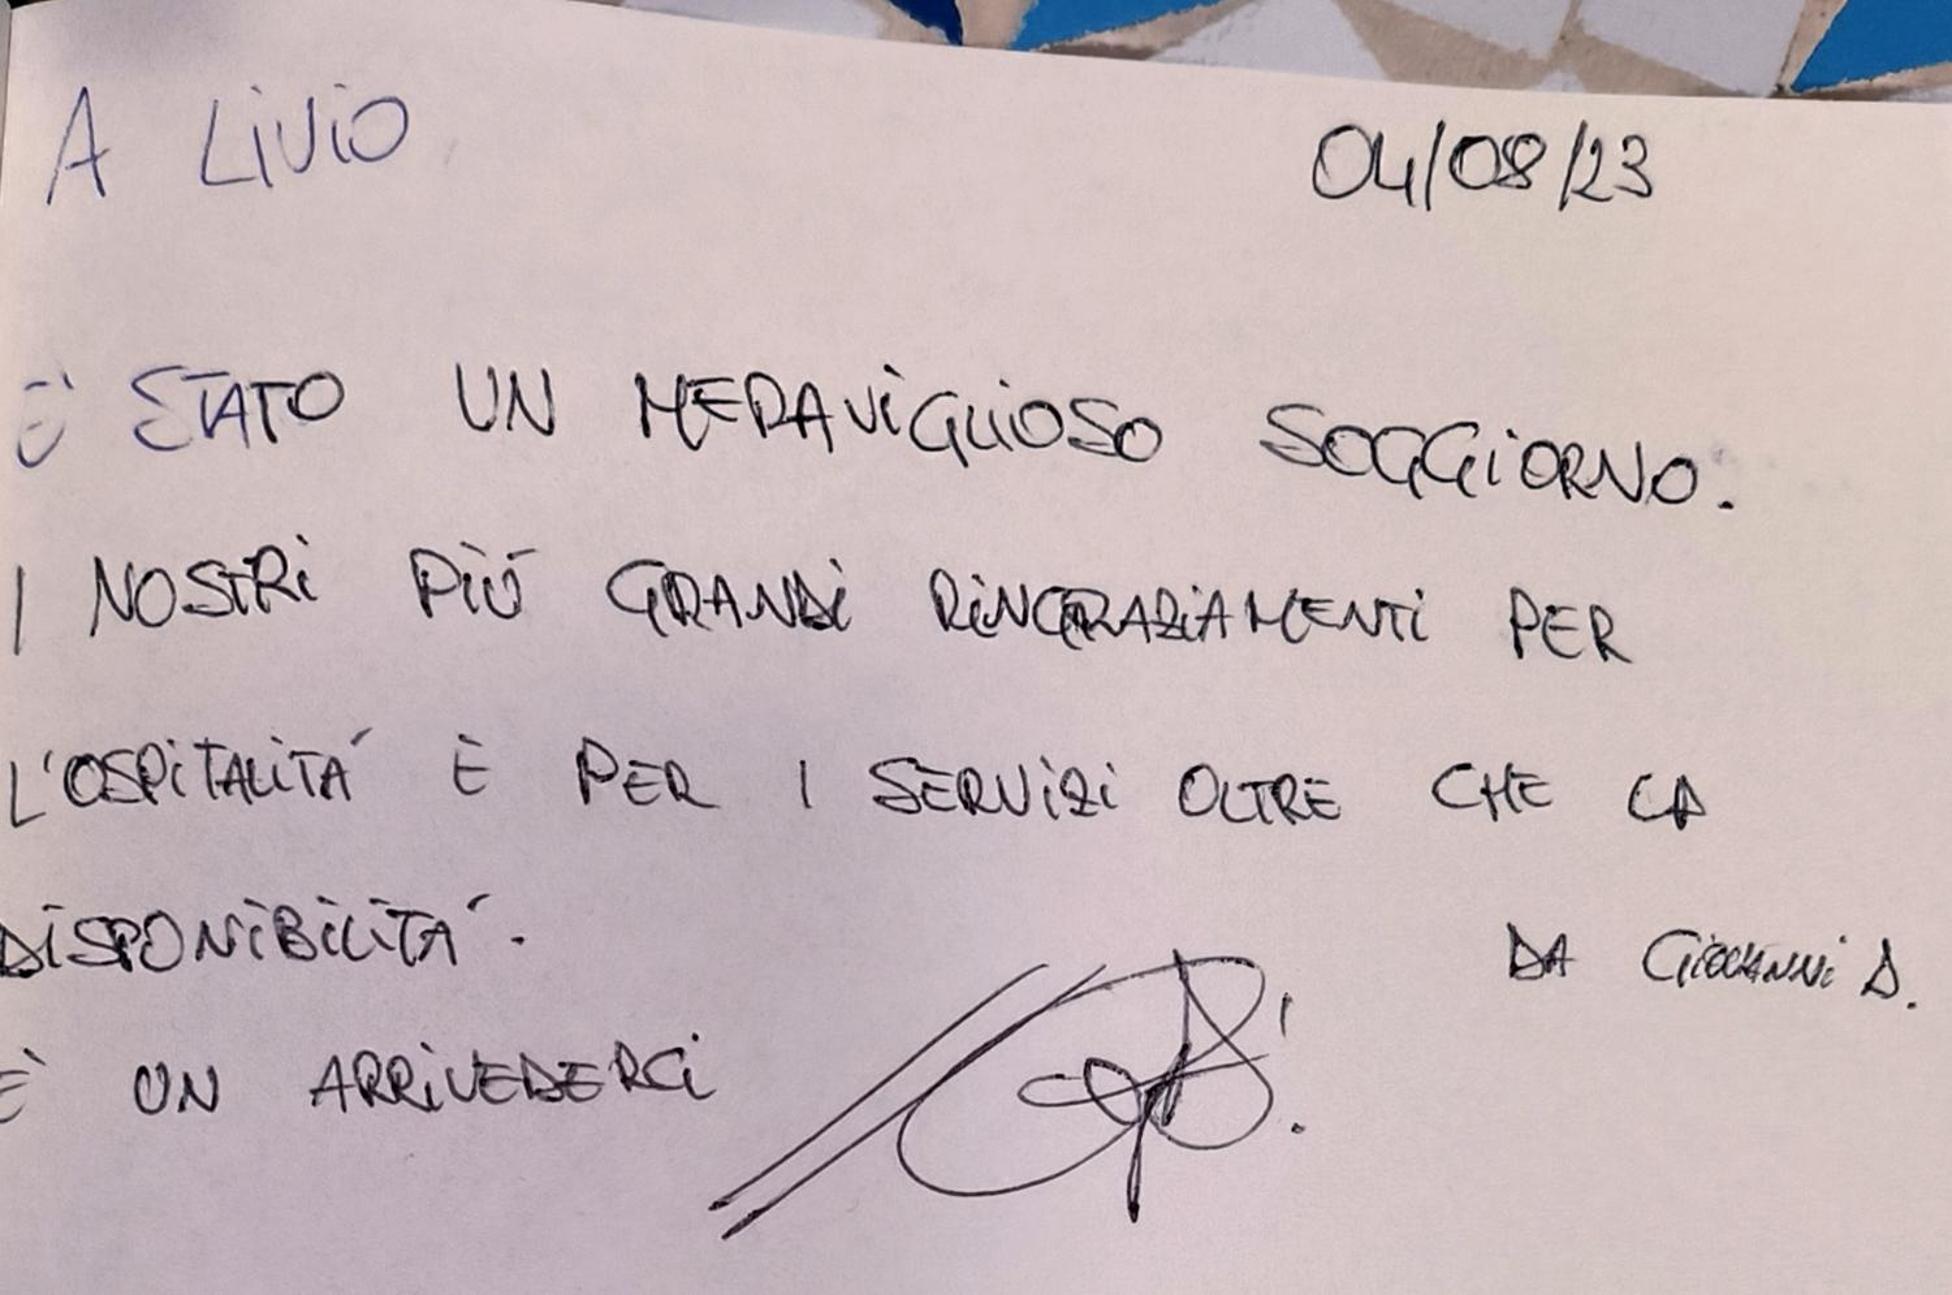 A LIVIO 04/08/23
E' STATO UN MERAVIGLIOSO SOGGIORNO.
I NOSTRI PIÙ GRANDI RINGRAZIAMENTI PER
L'OSPITALITA' E PER I SERVIZI OLTRE CHE LA
DISPONIBILITA'.
DA GIOVANNI D.
E' UN ARRIVEDERCI